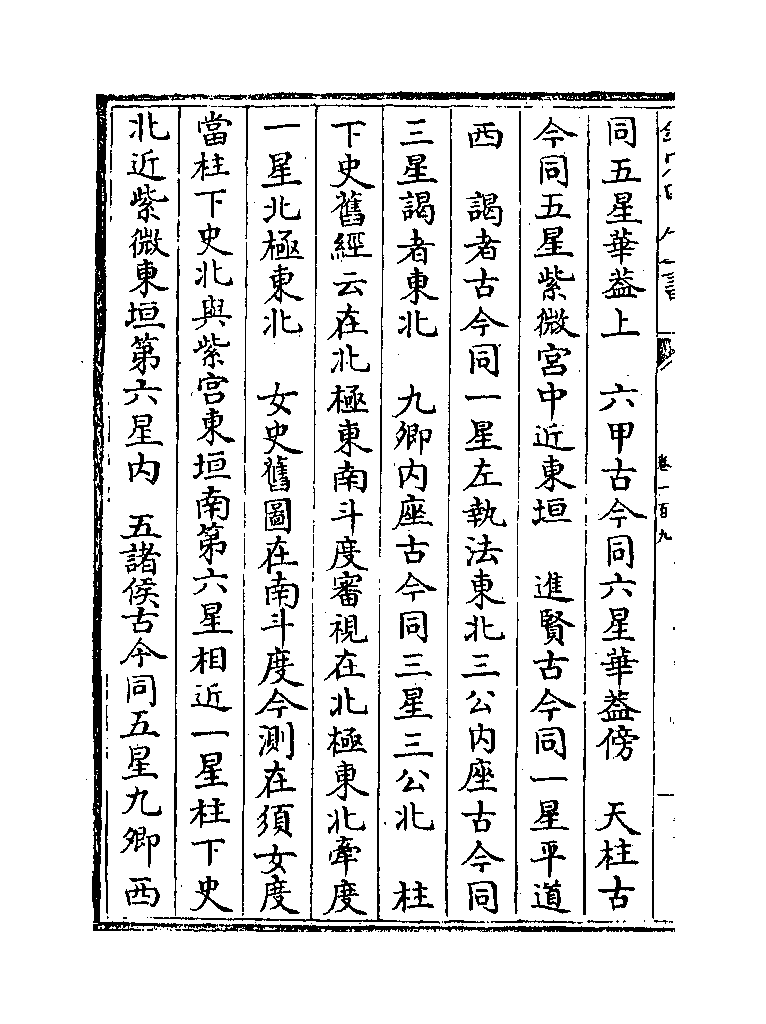 卷一百九
同五星華蓋上　六甲古今同六星華蓋傍　天柱古
今同五星紫微宮中近東垣　進賢古今同一星平道
西　謁者古今同一星左執法東北三公内座古今同
三星謁者東北　九卿内座古今同三星三公北　柱
下史舊經云在北極東南斗度審視在北極東北牽度
一星北極東北　女史舊圖在南斗度今測在須女度
當柱下史北與紫宫東垣南第六星相近一星柱下史
北近紫微東垣第六星内　五諸侯古今同五星九卿西